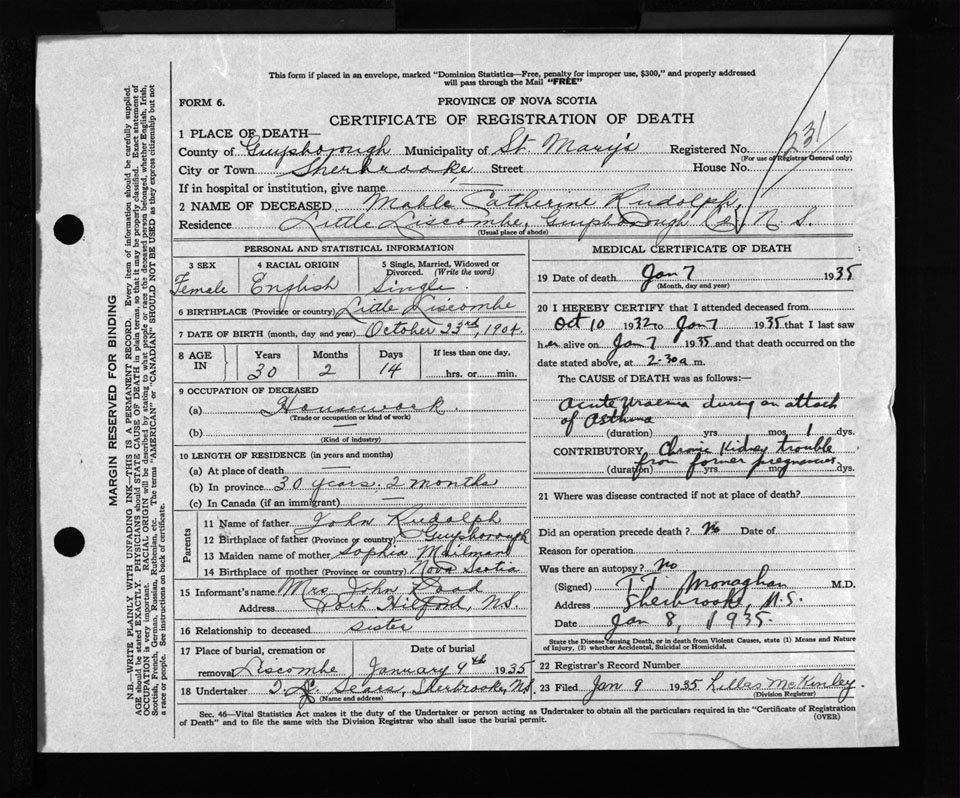 This form if placed in an envelope, marked "Dominion Statistics—Free, penalty for improper use, $300," and properly addressed
will pass through the Mail "FREE"
FORM 6.
PROVINCE OF NOVA SCOTIA
CERTIFICATE OF REGISTRATION OF DEATH
231
1 PLACE OF DEATH—
County of Guysborough Municipality of St. Mary's Registered No.
(For use of Registrar General only)
City or Town Sherbrooke Street House No.
If in hospital or institution, give name
2 NAME OF DECEASED Mable Catherine Rudolph,
Residence Little Liscombe, Guysborough Co., N S.
(Usual place of abode)
PERSONAL AND STATISTICAL INFORMATION
3 SEX 4 RACIAL ORIGIN 5 Single, Married, Widowed or
Divorced. (Write the word)
Female English Single
6 BIRTHPLACE (Province or country) Little Liscombe
7 DATE OF BIRTH (month, day and year) October 23rd, 1904.
8 AGE IN Years Months Days If less than one day,
30 2 14 hrs. or min.
9 OCCUPATION OF DECEASED
(a) Housework.
(Trade or occupation or kind of work)
(b) —
(Kind of industry)
10 LENGTH OF RESIDENCE (in years and months)
(a) At place of death —
(b) In province 30 years: 2 months
(c) In Canada (if an immigrant) —
Parents
11 Name of father John Rudolph
12 Birthplace of father (Province or country) Guysborough
13 Maiden name of mother Sophia Mailman
14 Birthplace of mother (Province or country) Nova Scotia
15 Informant's name Mrs John
Address Port Hilford, N.S.
16 Relationship to deceased sister
17 Place of burial, cremation or Date of burial
removal Liscombe January 9th 1935
18 Undertaker Sears, Sherbrooke, NS
(Name and address)
MEDICAL CERTIFICATE OF DEATH
19 Date of death Jan 7 1935
(Month, day and year)
20 I HEREBY CERTIFY that I attended deceased from
Oct 10 1932 to Jan 7 1935 that I last saw
her alive on Jan 7 1935 and that death occurred on the
date stated above, at 2-30 a. m.
The CAUSE OF DEATH was as follows:—
Acute Uraemia during an attack
of Asthma
(duration) yrs. mos. 1 dys.
CONTRIBUTORY Chronic Kidney trouble
from former pregnancies
(duration) yrs. mos. dys.
21 Where was disease contracted if not at place of death?
Did an operation precede death? No Date of
Reason for operation
Was there an autopsy? No
(Signed) Monaghan M.D.
Address Sherbrooke, N.S.
Date Jan 8, 1935.
State the Disease causing Death, or in death from Violent Causes, state (1) Means and Nature
of Injury, (2) whether Accidental, Suicidal or Homicidal.
22 Registrar's Record Number
23 Filed Jan 9 1935 Lillas McKinley.
(Division Registrar)
Sec. 46—Vital Statistics Act makes it the duty of the Undertaker or person acting as Undertaker to obtain all the particulars required in the "Certificate of Registration
of Death" and to file the same with the Division Registrar who shall issue the burial permit.
(OVER)
MARGIN RESERVED FOR BINDING
N.B.—WRITE PLAINLY WITH UNFADING INK—THIS IS A PERMANENT RECORD. Every item of information should be carefully supplied.
AGE should be stated EXACTLY. PHYSICIANS should STATE CAUSE OF DEATH in plain terms, so that it may be properly classified. Exact statement of
OCCUPATION is very important. RACIAL ORIGIN will be described by stating to what people or race this deceased person belonged, whether English, Irish,
Scottish, French, German, Russian, Ruthenian, etc. The terms "AMERICAN" or "CANADIAN" SHOULD NOT BE USED as they express citizenship but not
a race or people. See instructions on back of certificate.